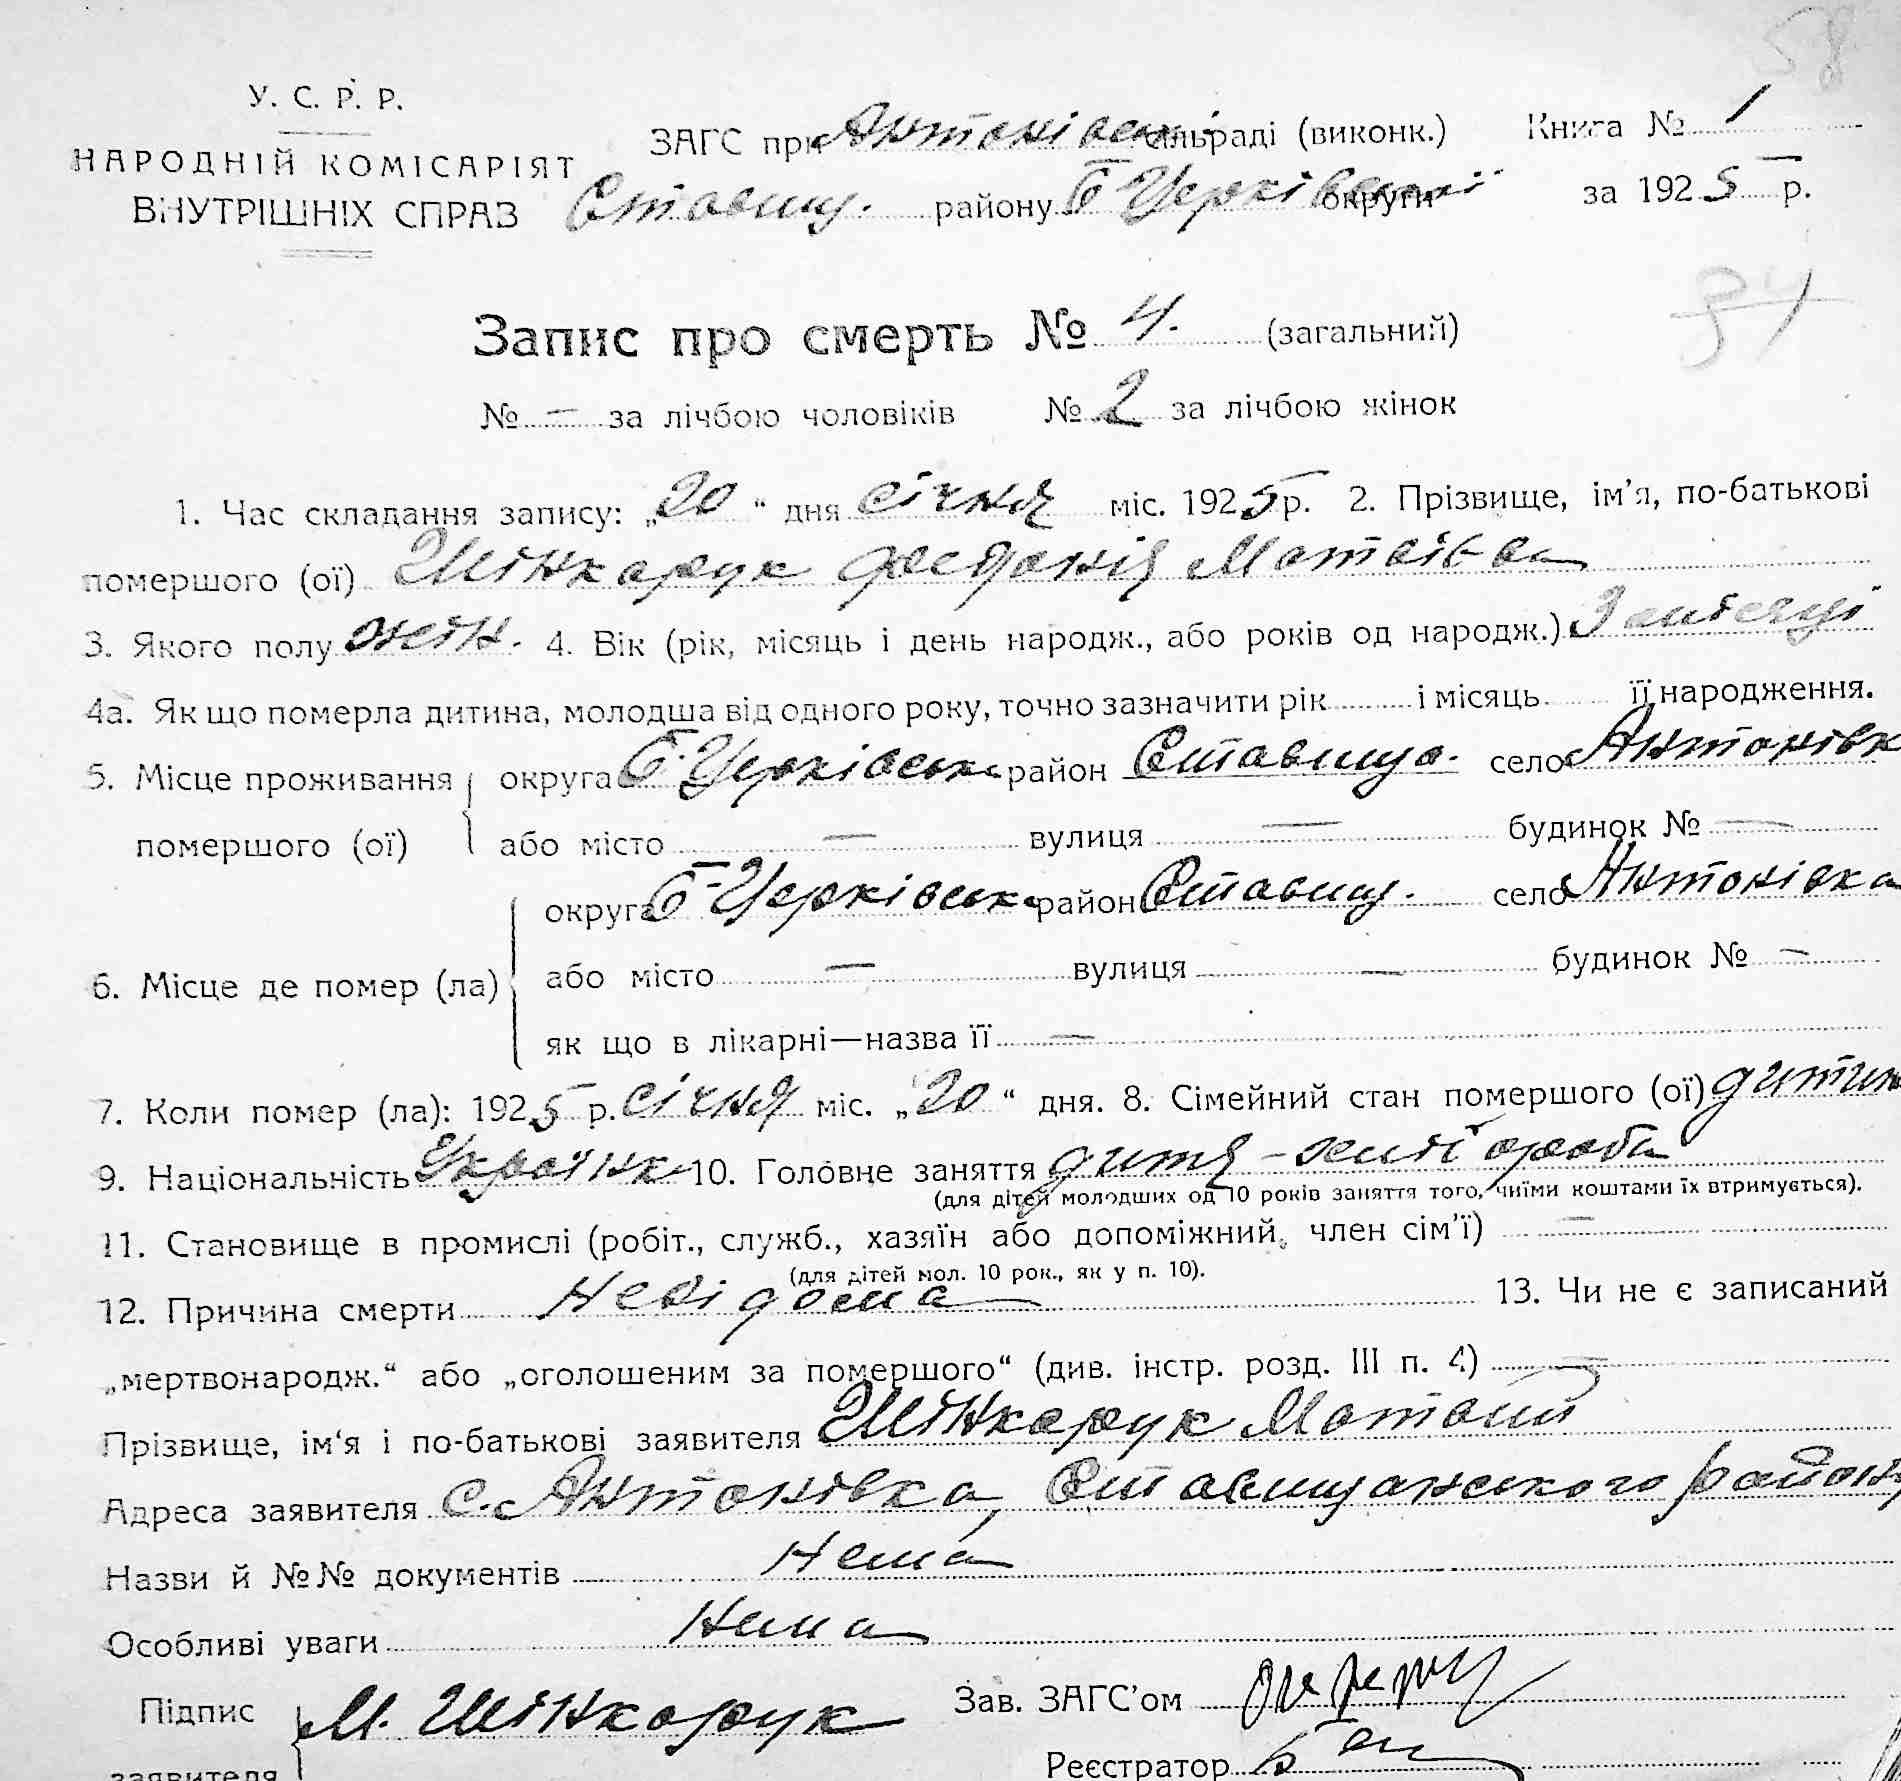 58
У. С. Р. Р.
НАРОДНІЙ КОМІСАРІЯТ
ВНУТРІШНІХ СПРАВ
ЗАГС при Антонівськ. сільраді (виконк.) Книга № 1
Ставищ. району Б Церківської округи за 1925 р.
34
Запис про смерть № 4. (загальний)
№ — за лічбою чоловіків № 2 за лічбою жінок
1. Час складання запису: „20“ дня січня міс. 1925 р. 2. Прізвище, ім’я, по-батькові
помершого (ої) Шінкарук Федонія Матвівна
3. Якого полу жін. 4. Вік (рік, місяць і день народж., або років од народж.) 3 місяці
4а. Як що померла дитина, молодша від одного року, точно зазначити рік і місяць її народження.
5. Місце проживання округа Б. Церківська район Ставищ. село Антонівк
помершого (ої) або місто — вулиця — будинок № —
округа Б-Церківська район Ставищ. село Антонівка
6. Місце де помер (ла) або місто — вулиця — будинок № —
як що в лікарні—назва її —
7. Коли помер (ла): 1925 р. січня міс. „20“ дня. 8. Сімейний стан помершого (ої) дитин
9. Національність Українк 10. Головне заняття дитя - хлібороба
(для дітей молодших од 10 років заняття того, чиїми коштами їх втримується).
11. Становище в промислі (робіт., служб., хазяїн або допоміжний, член сім’ї) —
(для дітей мол. 10 рок., як у п. 10).
12. Причина смерти Невідома 13. Чи не є записаний
„мертвонародж.“ або „оголошеним за помершого“ (див. інстр. розд. III п. 4) —
Прізвище, ім‘я і по-батькові заявителя Шінкарук Матвій
Адреса заявителя с. Антонівка, Ставищанського району
Назви й №№ документів Нема
Особливі уваги Нема
Підпис М. Шінкарук Зав. ЗАГС’ом
заявителя Реєстратор